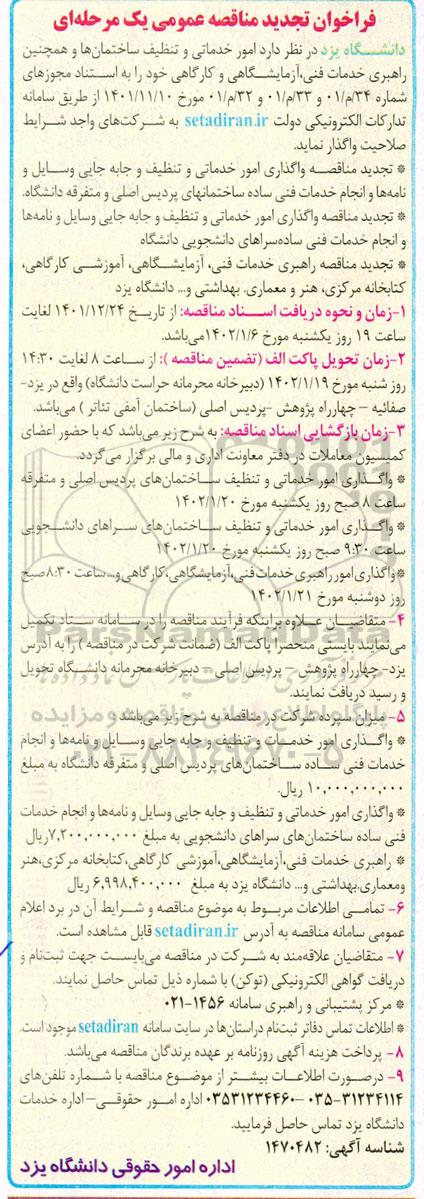 فراخوان تجدید مناقصه عمومی یک مرحله‌ای
دانشگاه یزد در نظر دارد امور خدماتی و تنظیف ساختمان‌ها و همچنین
راهبری خدمات فنی،آزمایشگاهی و کارگاهی خود را به استناد مجوزهای
شماره ۳۴/م/۰۱ و ۳۳/م/۰۱ و ۳۲/م/۰۱ مورخ ۱۴۰۱/۱۱/۱۰ از طریق سامانه
تدارکات الکترونیکی دولت setadiran.ir به شرکت‌های واجد شرایط
صلاحیت واگذار نماید.
* تجدید مناقصه واگذاری امور خدماتی و تنظیف و جابه جایی وسایل و
نامه‌ها و انجام خدمات فنی ساده ساختمانهای پردیس اصلی و متفرقه دانشگاه.
* تجدید مناقصه واگذاری امور خدماتی و تنظیف و جابه جایی وسایل و نامه‌ها
و انجام خدمات فنی ساده‌سراهای دانشجویی دانشگاه
* تجدید مناقصه راهبری خدمات فنی، آزمایشگاهی، آموزشی کارگاهی،
کتابخانه مرکزی، هنر و معماری، بهداشتی و... دانشگاه یزد
۱-زمان و نحوه دریافت اسناد مناقصه: از تاریخ ۱۴۰۱/۱۲/۲۴ لغایت
ساعت ۱۹ روز یکشنبه مورخ ۱۴۰۲/۱/۶ می‌باشد.
۲-زمان تحویل پاکت الف (تضمین مناقصه ): از ساعت ۸ لغایت ۱۴:۳۰
روز شنبه مورخ ۱۴۰۲/۱/۱۹ (دبیرخانه محرمانه حراست دانشگاه) واقع در یزد-
صفائیه – چهارراه پژوهش -پردیس اصلی (ساختمان آمفی تئاتر ) می‌باشد.
۳-زمان بازگشایی اسناد مناقصه: به شرح زیر می‌باشد که با حضور اعضای
کمیسیون معاملات در دفتر معاونت اداری و مالی برگزار می‌گردد.
* واگذاری امور خدماتی و تنظیف ساختمان‌های پردیس اصلی و متفرقه
ساعت ۸ صبح روز یکشنبه مورخ ۱۴۰۲/۱/۲۰
* واگذاری امور خدماتی و تنظیف ساختمان‌های سراهای دانشجویی
ساعت ۹:۳۰ صبح روز یکشنبه مورخ ۱۴۰۲/۱/۲۰
*واگذاری امور راهبری خدمات فنی،آزمایشگاهی،کارگاهی و...ساعت ۸:۳۰صبح
روز دوشنبه مورخ ۱۴۰۲/۱/۲۱
۴- متقاضیان علاوه براینکه فرآیند مناقصه را در سامانه ستاد تکمیل
می‌نمایند بایستی منحصرا پاکت الف (ضمانت شرکت در مناقصه ) را به آدرس
یزد-چهارراه پژوهش – پردیس اصلی – دبیرخانه محرمانه دانشگاه تحویل
و رسید دریافت نمایند.
۵- میزان سپرده شرکت در مناقصه به شرح زیر می‌باشد
* واگذاری امور خدمات و تنظیف و جابه جایی وسایل و نامه‌ها و انجام
خدمات فنی ساده ساختمان‌های پردیس اصلی و متفرقه دانشگاه به مبلغ
۱۰,۰۰۰,۰۰۰,۰۰۰ ریال.
* واگذاری امور خدماتی و تنظیف و جابه جایی وسایل و نامه‌ها و انجام خدمات
فنی ساده ساختمان‌های سراهای دانشجویی به مبلغ ۷,۲۰۰,۰۰۰,۰۰۰ریال
* راهبری خدمات فنی،آزمایشگاهی،آموزشی کارگاهی،کتابخانه مرکزی،هنر
ومعماری،بهداشتی و... دانشگاه یزد به مبلغ ۶,۹۹۸,۴۰۰,۰۰۰ ریال
۶- تمامی اطلاعات مربوط به موضوع مناقصه و شرایط آن در برد اعلام
عمومی سامانه مناقصه به آدرس setadiran.ir قابل مشاهده است.
۷- متقاضیان علاقه‌مند به شرکت در مناقصه می‌بایست جهت ثبت‌نام و
دریافت گواهی الکترونیکی (توکن) با شماره ذیل تماس حاصل نمایند.
* مرکز پشتیبانی و راهبری سامانه ۱۴۵۶-۰۲۱
* اطلاعات تماس دفاتر ثبت‌نام دراستان‌ها در سایت سامانه setadiran موجود است.
۸- پرداخت هزینه آگهی روزنامه بر عهده برندگان مناقصه می‌باشد.
۹- درصورت اطلاعات بیشتر از موضوع مناقصه با شماره تلفن‌های
۳۱۲۳۴۱۱۴-۰۳۵ – ۰۳۵۳۱۲۳۴۴۶۰ اداره امور حقوقی- اداره خدمات
دانشگاه یزد تماس حاصل فرمایید.
شناسه آگهی: ۱۴۷۰۴۸۲
اداره امور حقوقی دانشگاه یزد
ParsNamadData